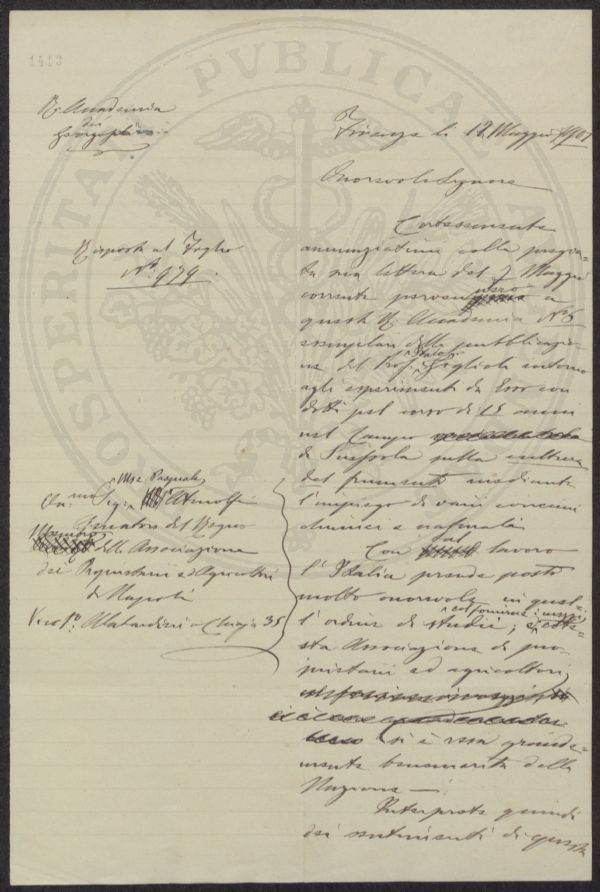 1413
R. Accademia
dei
Georgofili
Firenze li 12 Maggio 1901
Onorevole Signore
Risposta al Foglio
N° 979.
Cortesemente
annunziatimi colla pregia=
ta sua lettera del 7 Maggio
corrente pervennero a
questa R. Accademia N° 6
esemplari della pubblicazio=
ne del Prof. Italo Giglioli intorno
agli esperimenti da Esso con
dotti pel corso di 15 anni
nel Campo
di Suessola sulla cultura
del frumento mediante
l'impiego di varii concimi
chimici e naturali
Con tal lavoro
l'Italia prende posto
molto onorevole in quel=
l'ordine di studii; e col fornirne i mezzi, cote=
sta Associazione di pro=
prietarii ed agricoltori
si è resa grande=
mente benemerita della
Nazione.
Interprete quindi
dei sentimenti di questa
On.mo Sig. Mse Pasquale D'Atenolfi
Senatore del Regno
Membro della Associazione
dei Proprietarii ed Agricoltori
di Napoli
Vico P. Alabardieri a Chiaja 35
PVBLICA
PROSPERITA